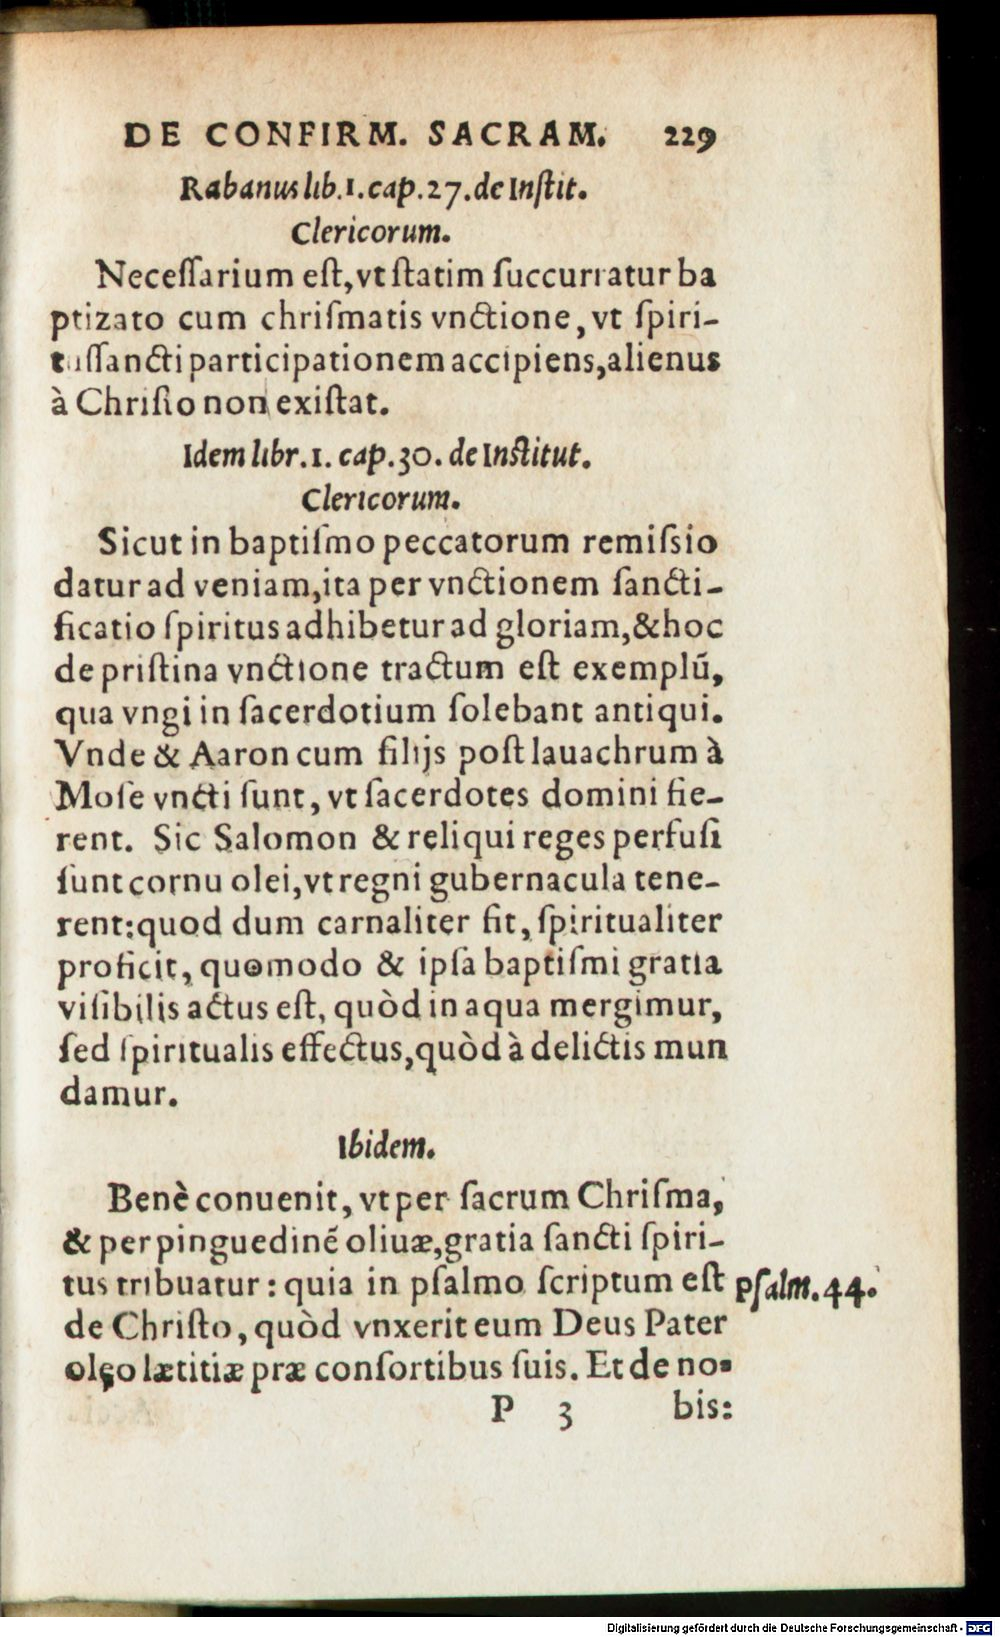 DE CONFIRM. SACRAM. 229
Rabanus lib.1.cap.27.de Inſtit.
Clericorum.
Neceſſarium eſt,vt ſtatim ſuccurratur ba
ptizato cum chriſmatis vnctione, vt ſpiri-
tuſſancti participationem accipiens,alienus
à Chriſto non exiſtat.
Idem libr.1. cap.30. de Inſtitut.
Clericorum.
Sicut in baptiſmo peccatorum remiſsio
datur ad veniam,ita per vnctionem ſancti-
ficatio ſpiritus adhibetur ad gloriam,& hoc
de priſtina vnctione tractum eſt exemplū,
qua vngi in ſacerdotium ſolebant antiqui.
Vnde & Aaron cum filijs poſt lauachrum à
Moſe vncti ſunt, vt ſacerdotes domini fie-
rent. Sic Salomon & reliqui reges perfuſi
ſunt cornu olei,vt regni gubernacula tene-
rent:quod dum carnaliter fit, ſpiritualiter
proficit, quomodo & ipſa baptiſmi gratia
viſibilis actus eſt, quòd in aqua mergimur,
ſed ſpiritualis effectus,quòd à delictis mun
damur.
Ibidem.
Benè conuenit, vt per ſacrum Chriſma,
& per pinguedinē oliuæ,gratia ſancti ſpiri-
tus tribuatur: quia in pſalmo ſcriptum eſt Pſalm.44.
de Chriſto, quòd vnxerit eum Deus Pater
olęo lætitiæ præ conſortibus ſuis. Et de no-
P 3 bis:
Digitalisierung gefördert durch die Deutsche Forschungsgemeinschaft - DFG